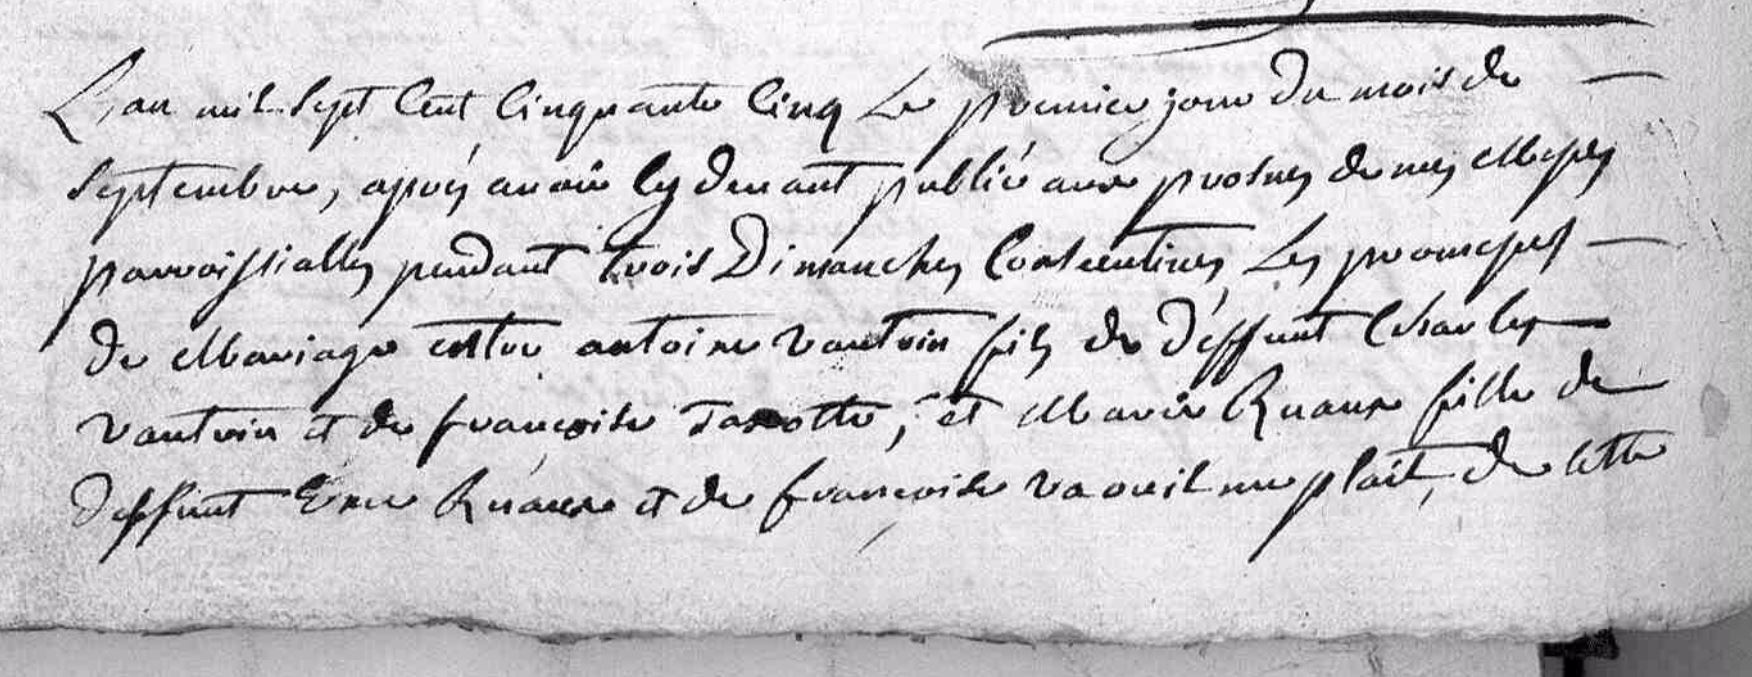 L'an mil sept cent cinquante cinq le premier jour du mois de
septembre, aprés avoir cy devant publié aux prosnes de mes Messes
parroissialles pendant trois Dimanches consecutives les promesses
de Mariage entre antoine vautrin fils de deffunt Charles
vautrin et de françoise, et Marie Ruaux fille de
deffunt Ruaux et de françoise plait, de cette